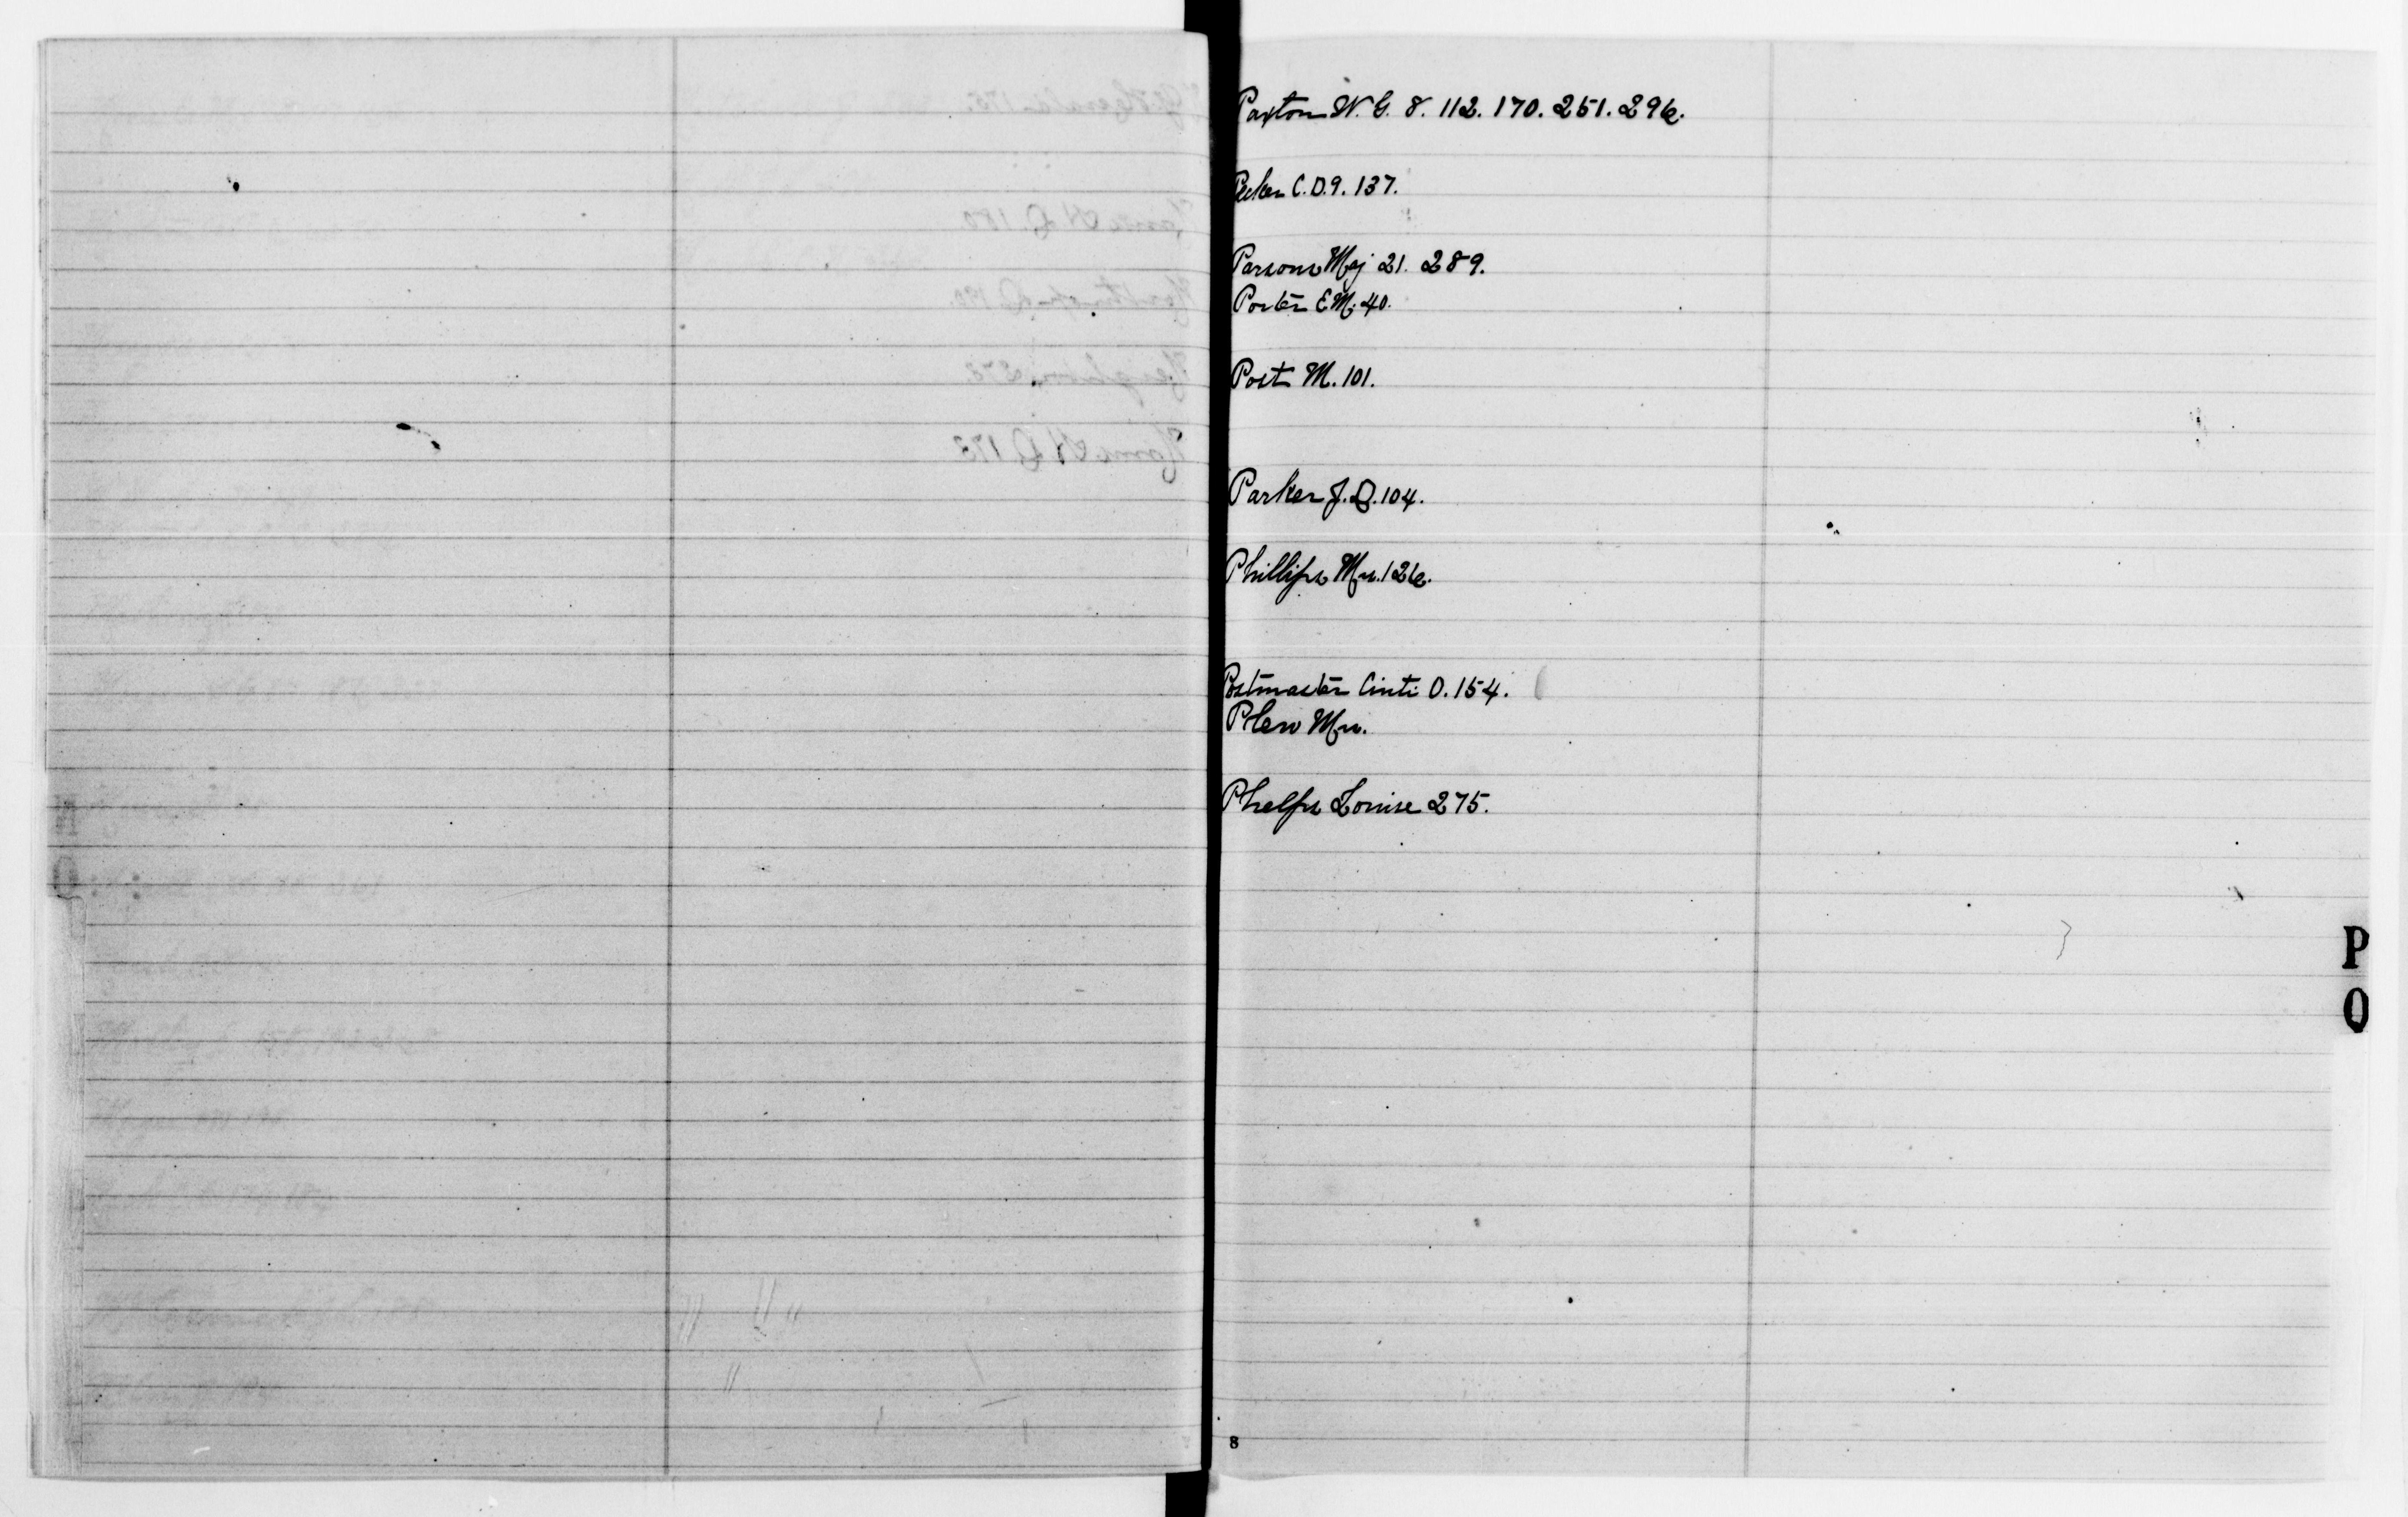 Paxton W. G. 8. 112. 170. 251. 296.
C. D. 9. 137.
Parsons Maj 21. 289.
Porter E M. 40.
Post M. 101.
Parker J. Q. 104.
Phillips Mr. 126.
Postmaster Cinti O. 154.
Plew Mr.
Phelps Louise 275.
P
Q
8